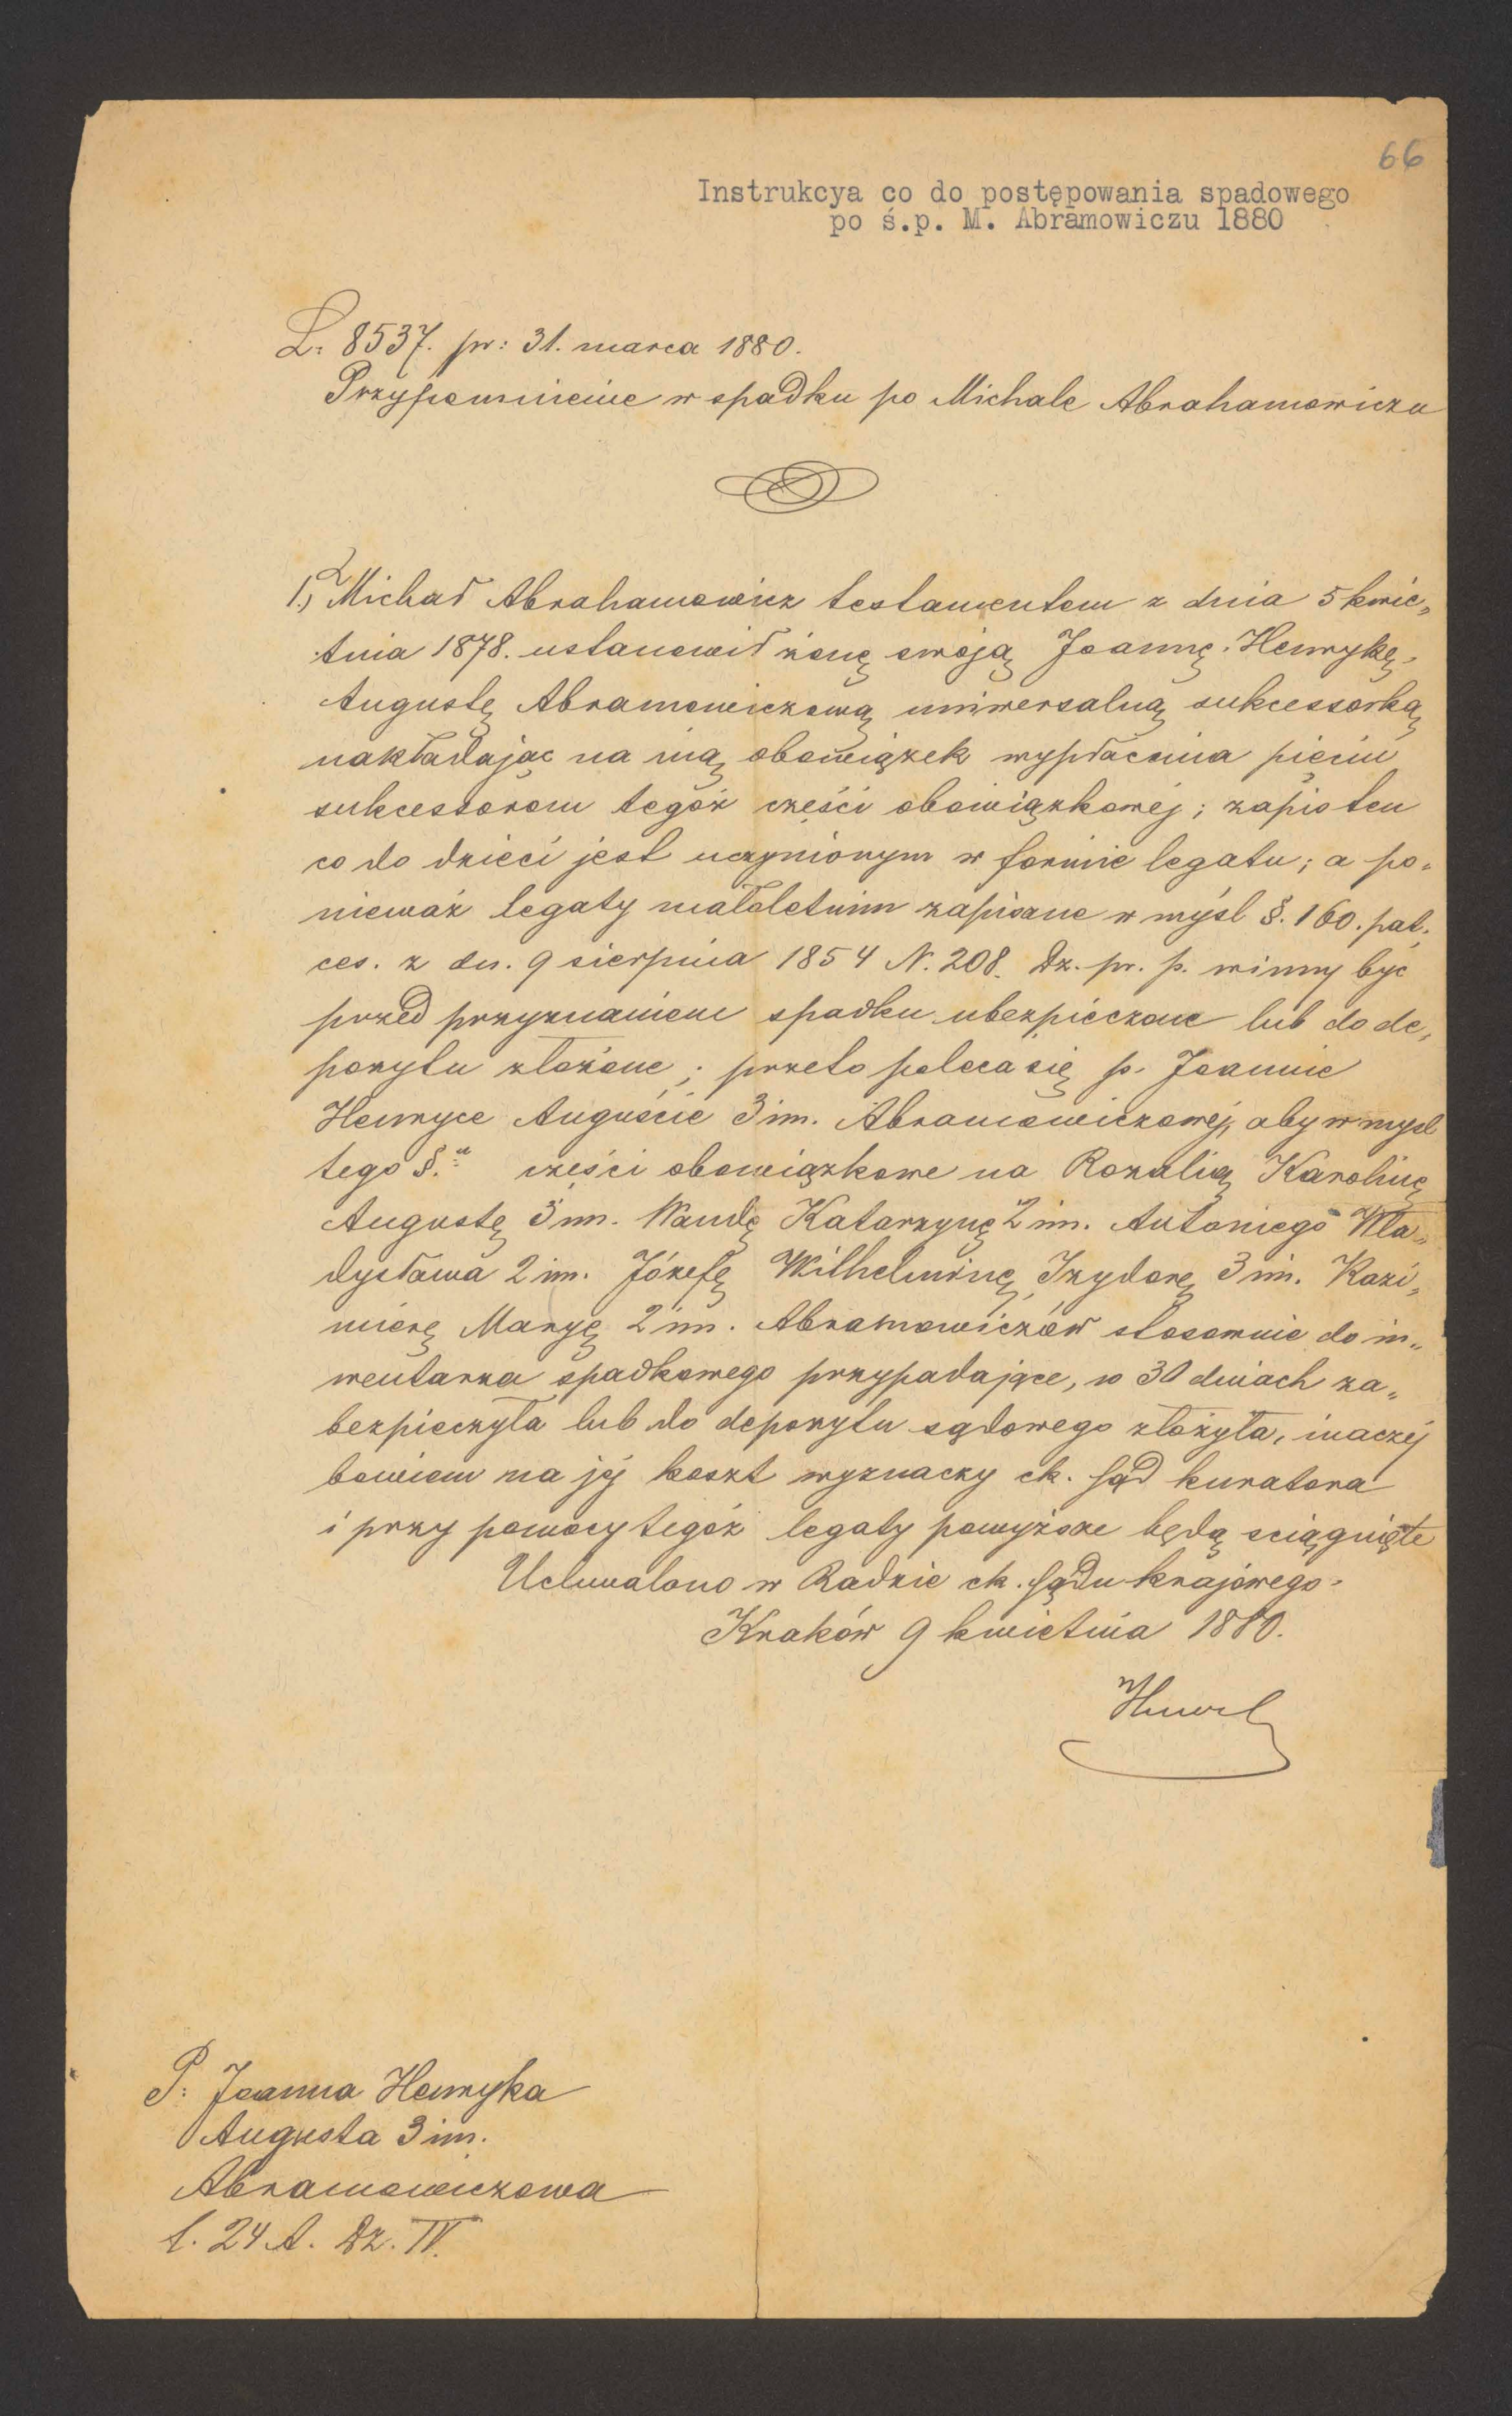 66
Instrukcya co do postępowania spadowego
po ś.p. M. Abramowiczu 1880
L: 8537. pr: 31. marca 1880.
Przypomnienie w spadku po Michale Abrahamowiczu
1.) Michał Abrahamowicz testamentem z dnia 5 kwie„
tnia 1878. ustanowił żonę swoją Joannę Henrykę
Augustę Abramowiczową uniwersalną sukcessorką
nakładając na nią obowiązek wypłacenia pięciu
sukcessorom tegóż części obowiązkowej; zapis ten
co do dzieci jest uczynionym w formie legatu; a po„
nieważ legaty małoletnim zapisane w myśl §. 160. pat.
ces. z dn. 9 sierpnia 1854 N. 208. Dz. pr. p. winny być
przed przyznaniem spadku ubezpieczone lub do de„
pozytu złożone; przeto poleca się p. Joannie
Henryce Auguście 3 im. Abramowiczowej, aby w mysl
tego §.u części obowiązkowe na Rozalią Karolinę
Augustę 3 im. Wandę Katarzynę 2 im. Antoniego Wła„
dysława 2 im. Józefę Wilhelminę Izydorę 3 im. Kazi„
mierę Maryę 2 im. Abramowiczów stosownie do in„
wentarza spadkowego przypadające, w 30 dniach za„
bezpieczyła lub do depozytu sądowego złożyła, inaczej
bowiem na jej koszt wyznaczy ck. Sąd kuratora
i przy pomocy tegóż legaty powyższe będą sciągnięte
Uchwalono w Radzie ck. Sądu krajowego.
Kraków 9 kwietnia 1880.
P: Joanna Henryka
Augusta 3 im.
Abramowiczowa
l. 24 A. Dz. IV.